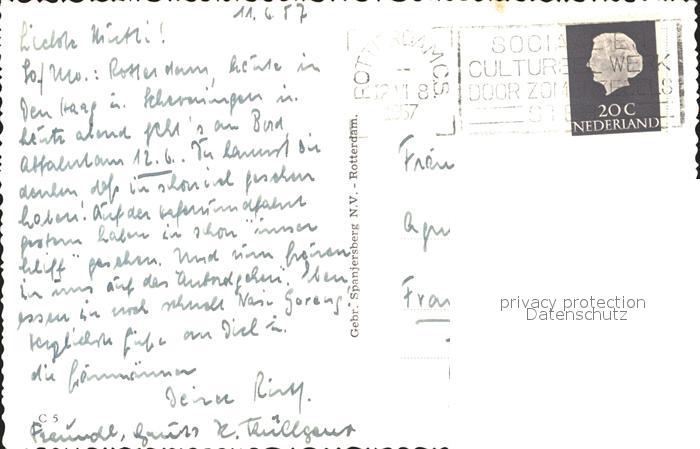 11.6.57
Liebste Mutti!
So/Mo.: Rotterdam, heute in
Den Haag u. Scheveningen u.
heute abend geht's an Bord
Abfahrt am 12.6. Du kannst Dir
denken daß wir schon viel gesehen
haben! Auf der Hafenrundfahrt
gestern haben wir schon "unser
Schiff" gesehen. Und nun freuen
wir uns auf das Anbordgehen. Eben
essen wir noch schnell Nasi Goreng!
Herzlichste Grüße an Dich u.
die
Deine
C 5
Freundl. Gruß K.
Gebr. Spanjersberg N.V. - Rotterdam.
ROTTERDAM C.S.
12 VI 8
1957
SOCIA E
CULTURE WERK
DOOR ZOM ZEGELS
20 C
NEDERLAND
Fräu
Agn
Fran
privacy protection
Datenschutz